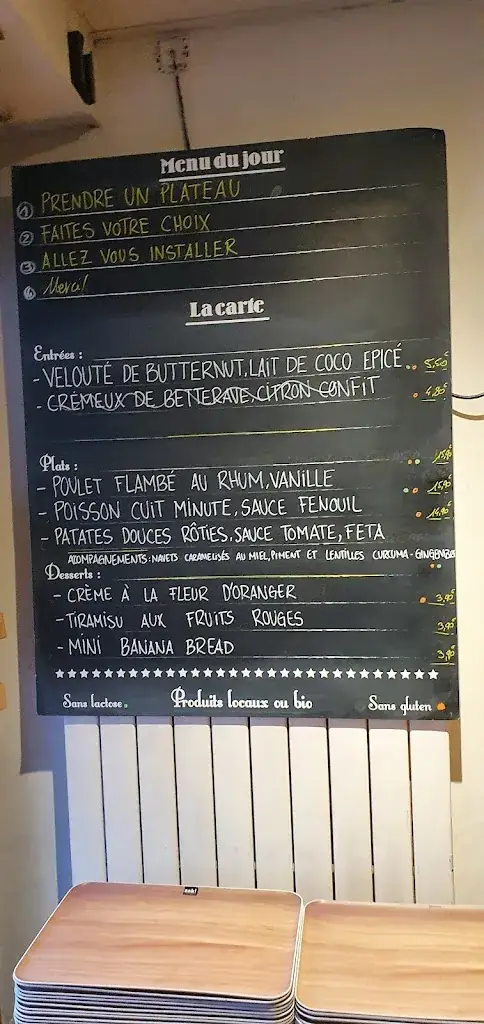 Menu du jour
1 PRENDRE UN PLATEAU
2 FAITES VOTRE CHOIX
3 ALLEZ VOUS INSTALLER
4 Merci!
La carte
Entrées :
- VELOUTÉ DE BUTTERNUT, LAIT DE COCO EPICÉ 5,50€
- CRÉMEUX DE BETTERAVE, CITRON CONFIT 4,80€
Plats :
- POULET FLAMBÉ AU RHUM, VANILLE
- POISSON CUIT MINUTE, SAUCE FENOUIL
- PATATES DOUCES RÔTIES, SAUCE TOMATE, FETA
ACOMPAGNEMENTS: NAVETS CARAMELISÉS AU MIEL, PIMENT ET LENTILLES CURCUMA - GINGEMBRE
Desserts :
- CRÈME À LA FLEUR D'ORANGER
- TIRAMISU AUX FRUITS ROUGES
- MINI BANANA BREAD
Sans lactose. Produits locaux ou bio Sans gluten